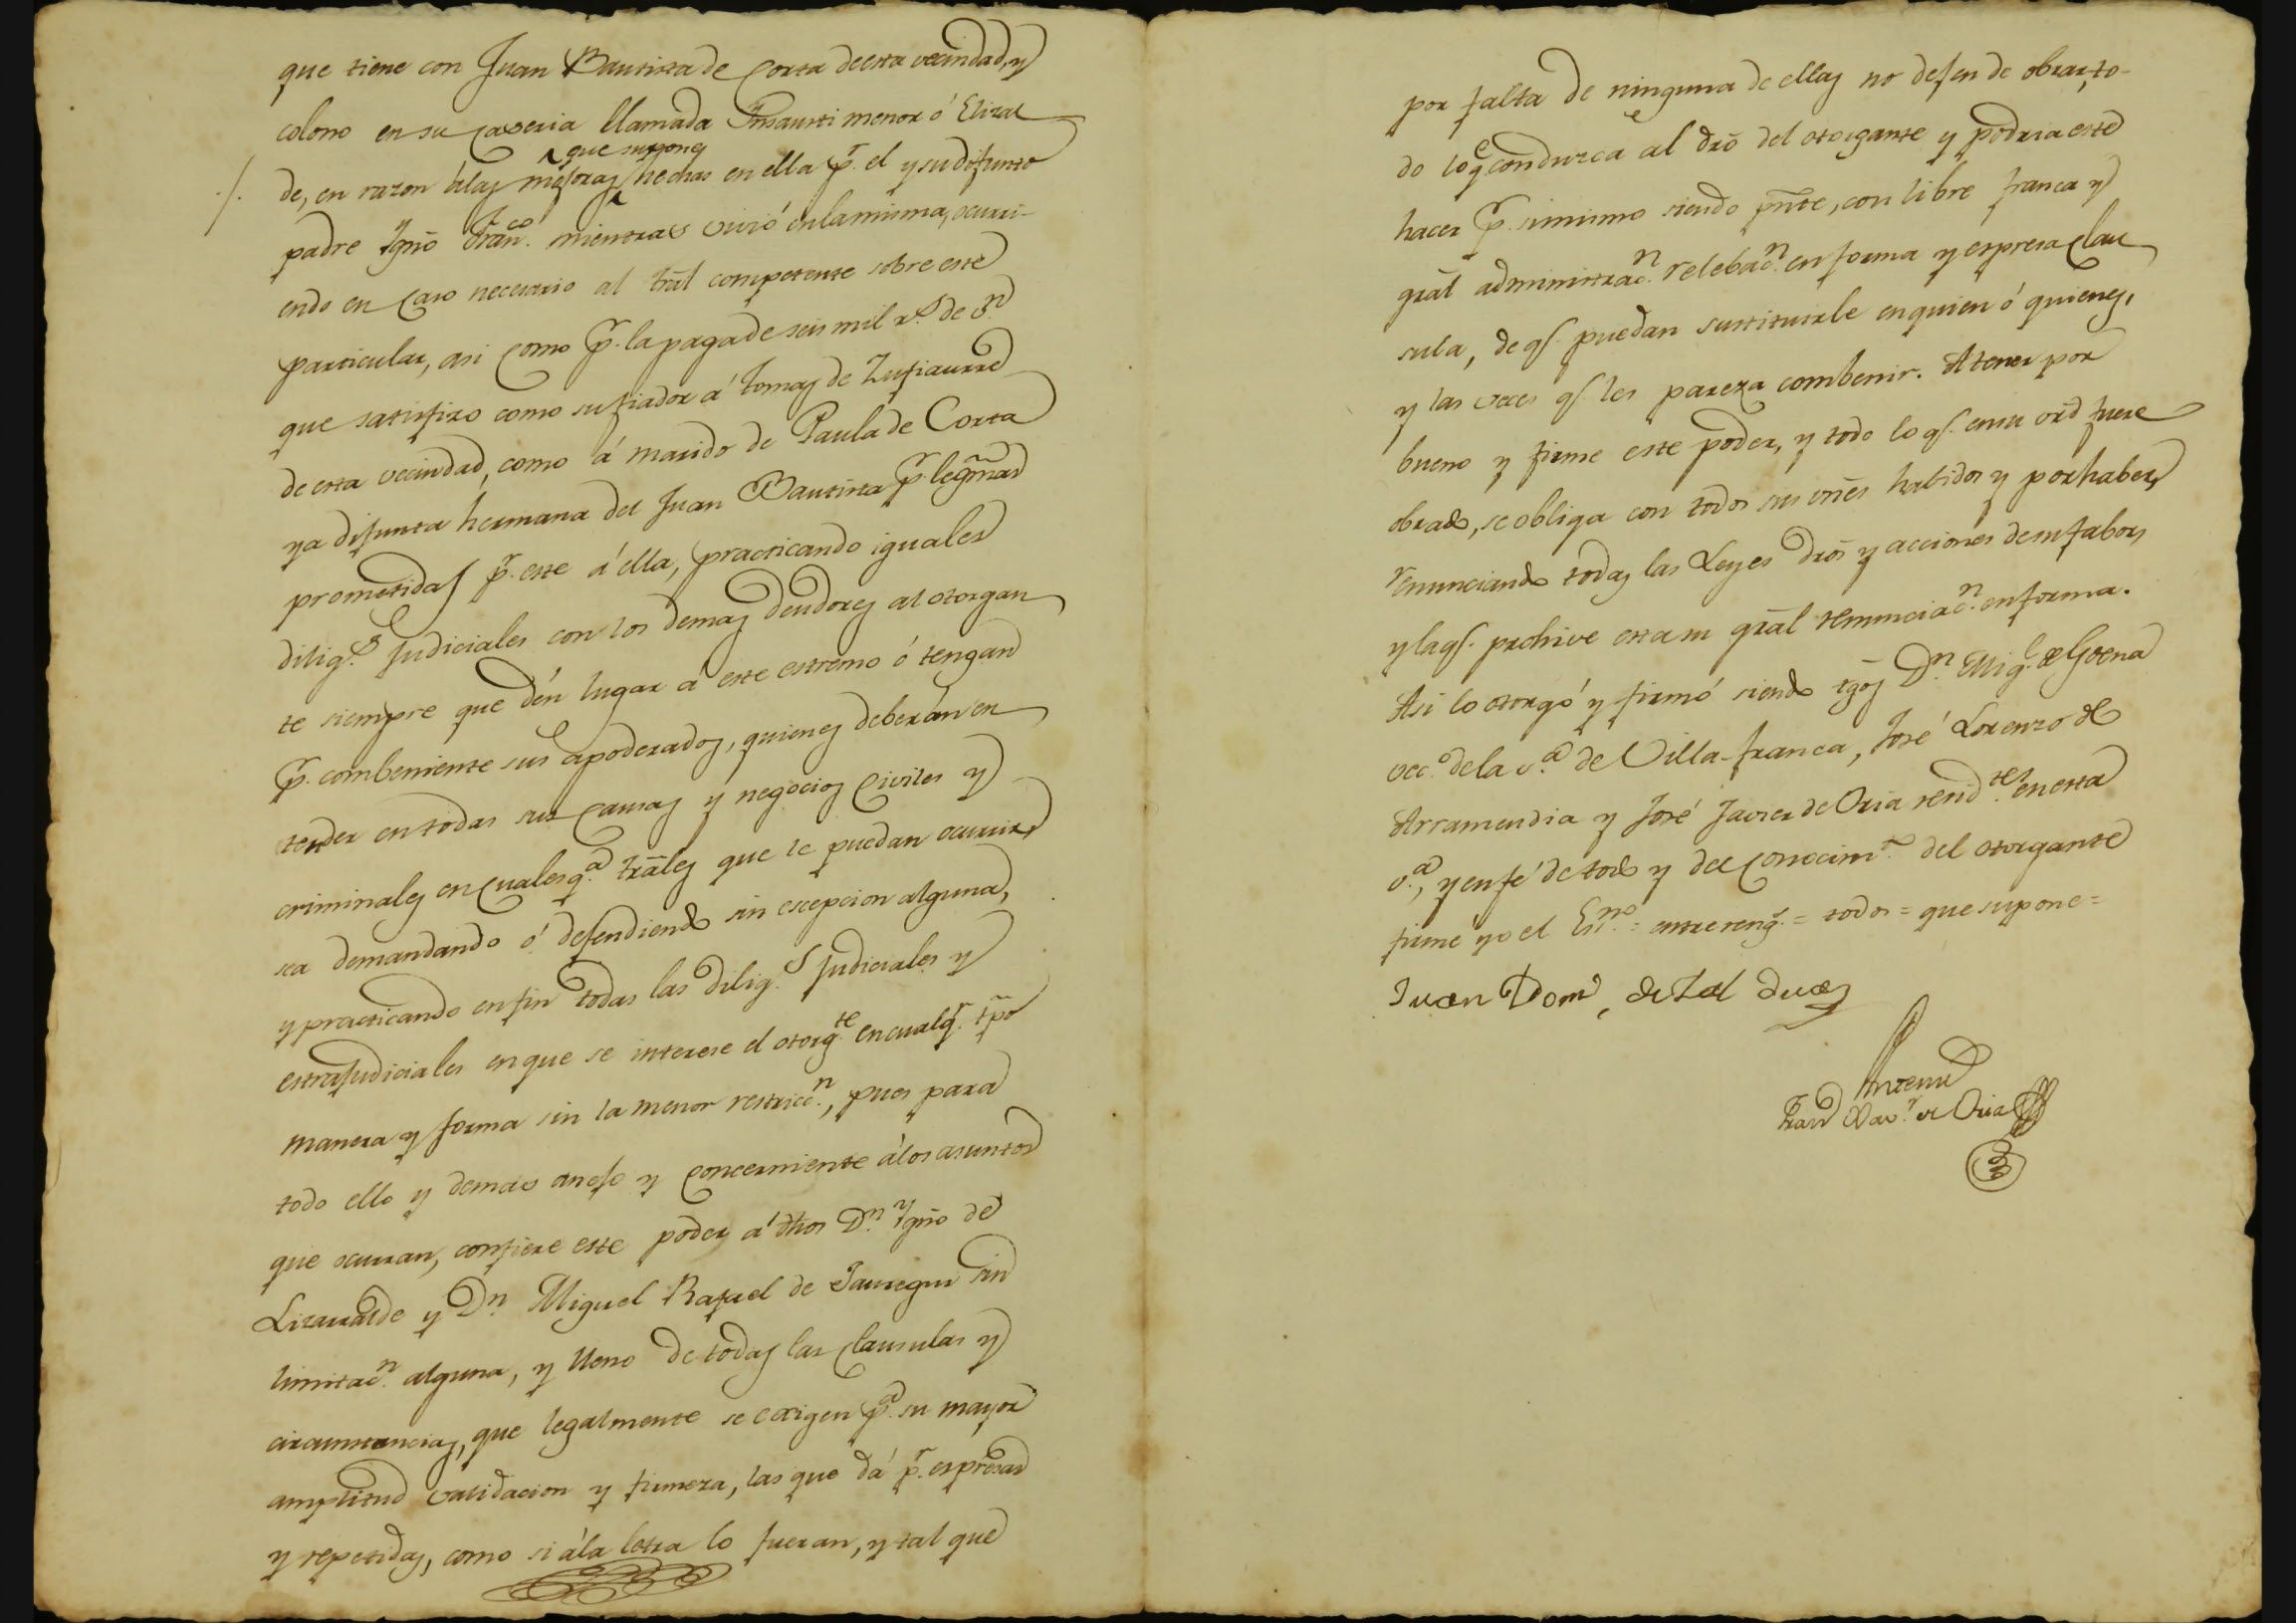 que tiene con Juan Bautista de Corta de esta vecindad, y
colono en su Caseria llamada Insausti menor ó Elizal
^ que supone
./. de, en razon à las mejoras hechas en ella pr. el y su difunto
padre Ygno. Franco. mientras vivió en la misma, ocurri-
endo en caso necesario al tral competente sobre este
particular, asi como pr. la paga de seis mil rs. de von
que satisfizo como su fiador á Tomas de Zufiaurre
de esta vecindad, como á marido de Paula de Corta
ya difunta hermana del Juan Bautista pr. legmas
prometidas pr. este á ella, practicando iguales
diligs. judiciales con los demas deudores al otorgan
te siempre que dén lugar á este estremo ó tengan
pr. combeniente sus apoderados, quienes deberán en
tender en todas sus causas y negocios Civiles y
criminales en Cualesqa. trales que le puedan ocurrir,
sea demandando ó defendiendo sin escepcion alguna,
y practicando en fin todas las diligs. judiciales y
estrajudiciales en que se interese el otorgte. en cualqr. tpo
manera y forma sin la menor restriccn., pues para
todo ello y demas anejo y concerniente á los asuntos
que ocurran, confiere este poder á dhos Dn. Ygno de
Lizarralde y Dn. Miguel Rafael de Jauregui sin
limitacn. alguna, y lleno de todas las Clausulas y
circunstancias, que legalmente se exigen pa. su mayor
amplitud validacion y firmeza, las que dá pr. espresas
y repetidas, como si á la letra lo fueran, y tal que
por falta de ninguna de ellas no dejen de obrar, to-
do loqe conduzca al dro del otorgante y podria este
hacer pr. si mismo siendo pnte, con libre franca y
gral administracn. relebacn. en forma y espresa clau
sula, de qe. puedan sustituirle en quien ó quienes,
y las veces qe. les parezca combenir. A tener por
bueno y firme este poder, y todo lo qe. en su vrd fuere
obrado, se obliga con todos sus vnes habidos y por haber,
renunciando todas las Leyes dros y acciones de su fabor,
y la qe. prohive esta su gral renunciacn. en forma.
Asi lo otorgó y firmó siendo tgos Dn. Migl. de Goena
veco. de la va. de Villa-franca, José Lorenzo de
Arramendia y José Javier de Oria residtes. en esta
va., y en fé de todo y del conocimto. del otorgante
firmé yo el Esno. = entre reng. = todos = que supone =
Juan Domo, de Zal dua
Antemi
Franco Xavr. de Oria